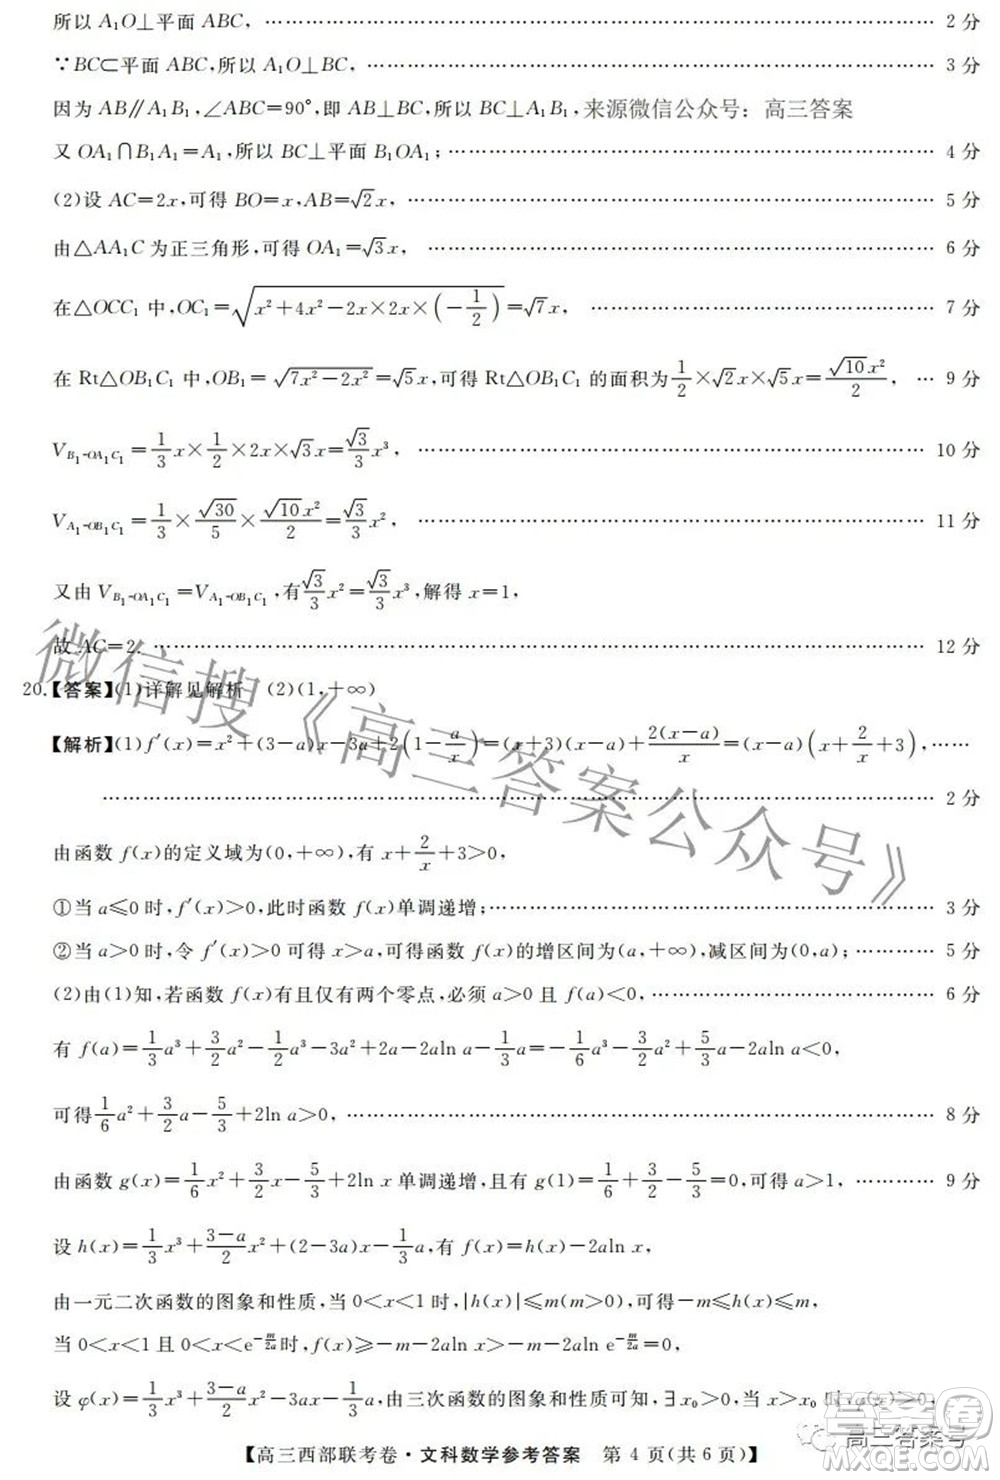 所以 A₁O⊥平面 ABC, …… 2 分
∵BC⊂平面 ABC,所以 A₁O⊥BC, …… 3 分
因为 AB∥A₁B₁,∠ABC=90°,即 AB⊥BC,所以 BC⊥A₁B₁, 来源微信公众号：高三答案
又 OA₁∩B₁A₁=A₁,所以 BC⊥平面 B₁OA₁; …… 4 分
(2)设 AC=2x,可得 BO=x,AB=√2x, …… 5 分
由△AA₁C 为正三角形,可得 OA₁=√3x, …… 6 分
在△OCC₁ 中,OC₁=√(x²+4x²-2x×2x×(-1/2))=√7x, …… 7 分
在 Rt△OB₁C₁ 中,OB₁=√(7x²-2x²)=√5x,可得 Rt△OB₁C₁ 的面积为1/2×√2x×√5x=√10x²/2, … 9 分
V_{B₁-OA₁C₁}=1/3x×1/2×2x×√3x=√3/3x³, …… 10 分
V_{A₁-OB₁C₁}=1/3×√30/5×√10x²/2=√3/3x², …… 11 分
又由 V_{B₁-OA₁C₁}=V_{A₁-OB₁C₁},有√3/3x²=√3/3x³,解得 x=1,
故 AC=2. …… 12 分
20.【答案】(1)详解见解析 (2)(1,+∞)
【解析】(1)f′(x)=x²+(3-a)x-3a+2(1-a/x)=(x+3)(x-a)+2(x-a)/x=(x-a)(x+2/x+3),……
…… 2 分
由函数 f(x)的定义域为(0,+∞),有 x+2/x+3>0,
①当 a≤0 时,f′(x)>0,此时函数 f(x)单调递增;…… 3 分
②当 a>0 时,令 f′(x)>0 可得 x>a,可得函数 f(x)的增区间为(a,+∞),减区间为(0,a); …… 5 分
(2)由(1)知,若函数 f(x)有且仅有两个零点,必须 a>0 且 f(a)<0, …… 6 分
有 f(a)=1/3a³+3/2a²-1/2a³-3a²+2a-2aln a-1/3a=-1/6a³-3/2a²+5/3a-2aln a<0,
可得1/6a²+3/2a-5/3+2ln a>0, …… 8 分
由函数 g(x)=1/6x²+3/2x-5/3+2ln x 单调递增,且有 g(1)=1/6+3/2-5/3=0,可得 a>1, …… 9 分
设 h(x)=1/3x³+(3-a)/2x²+(2-3a)x-1/3a,有 f(x)=h(x)-2aln x,
由一元二次函数的图象和性质,当 0<x<1 时,|h(x)|≤m(m>0),可得-m≤h(x)≤m,
当 0<x<1 且 0<x<e^{-m/2a}时,f(x)≥-m-2aln x>-m-2aln e^{-m/2a}=0,
设 φ(x)=1/3x³+(3-a)/2x²-3ax-1/3a,由三次函数的图象和性质可知,∃x₀>0,当 x>x₀ 时,φ(x)>0,
【高三西部联考卷·文科数学参考答案 第 4 页(共 6 页)】
微信搜《高三答案公众号》
高三答案号